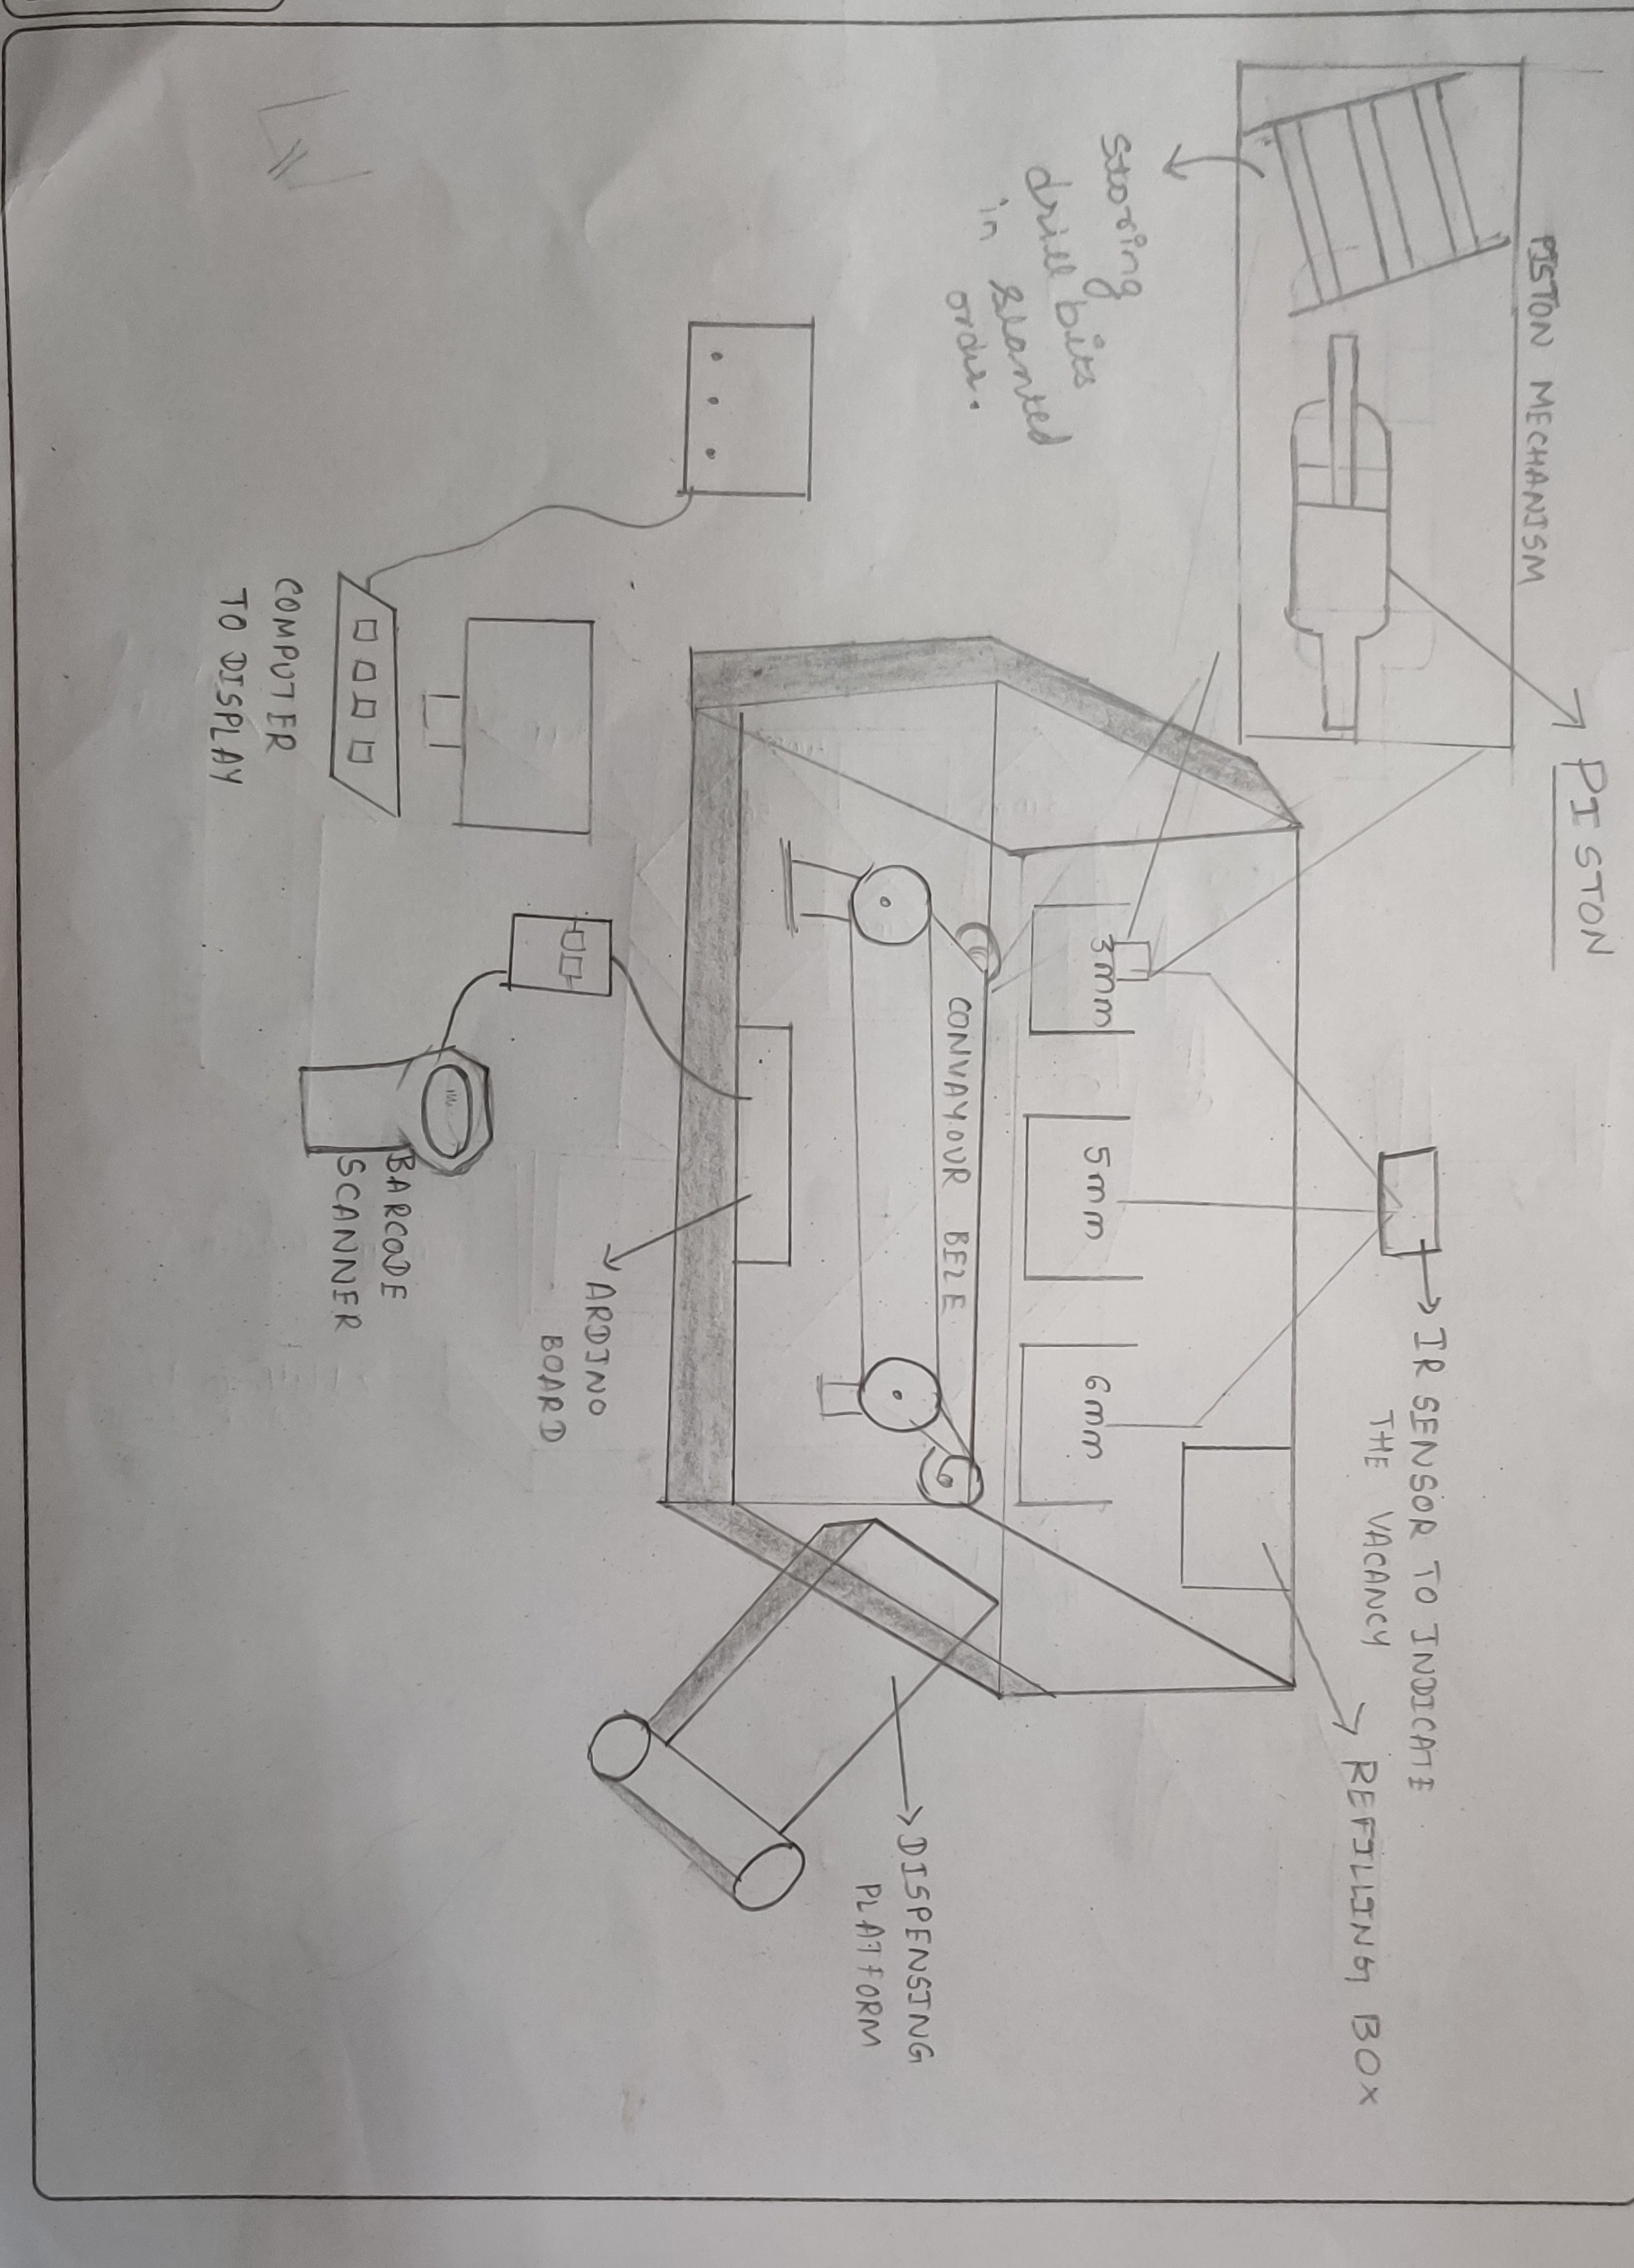 PISTON
PISTON MECHANISM
IR SENSOR TO INDICATE
THE VACANCY
REFILLING BOX
Storing
drill bits
in slanted
order.
3mm
5mm
6mm
CONVAYOUR BELE
DISPENSING
PLATFORM
ARDINO
BOARD
BARCODE
SCANNER
COMPUTER
TO DISPLAY